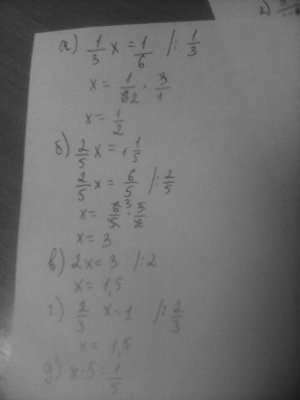 а) 1/3 x = 1/6 /: 1/3
x = 1/62 · 3/1
x = 1/2
б) 2/5 x = 1 1/5
2/5 x = 6/5 /: 2/5
x = 6/5 3 · 5/2
x = 3
в) 2x = 3 /: 2
x = 1,5
г) 2/3 x = 1 /: 2/3
x = 1,5
д) x · 5 = 1/5